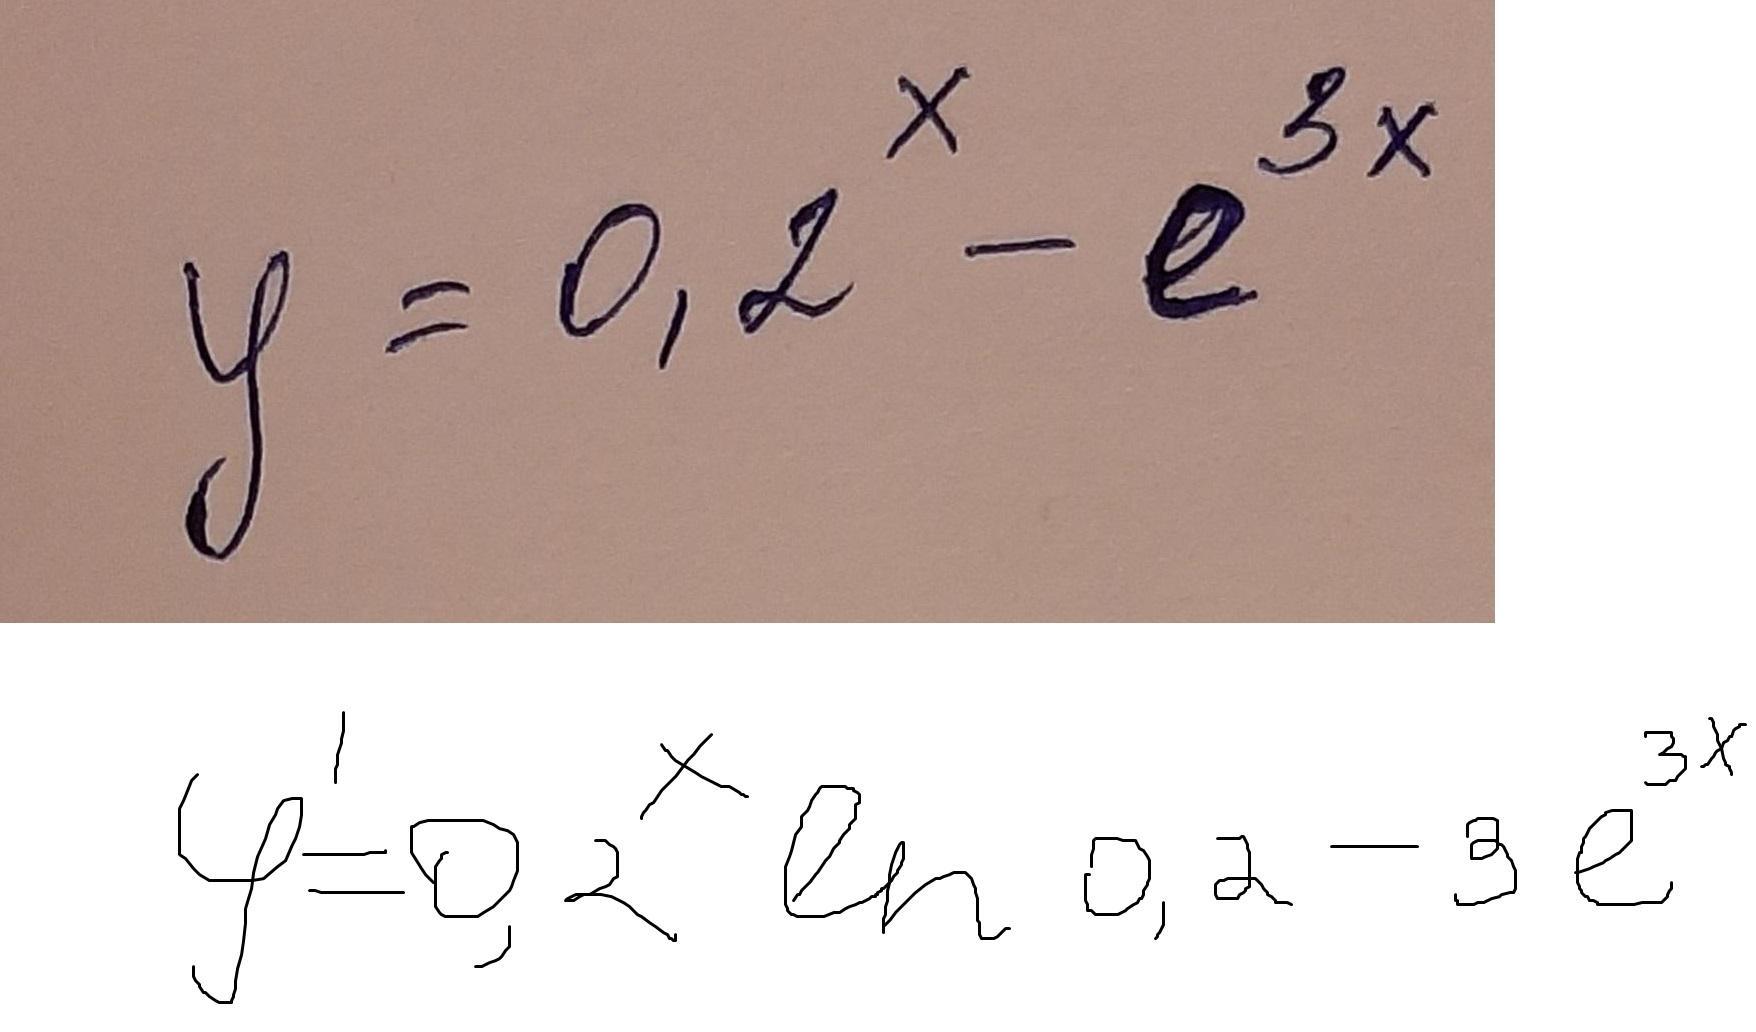 y = 0,2^x - e^{3x}
y' = 0,2^x ln 0,2 - 3e^{3x}